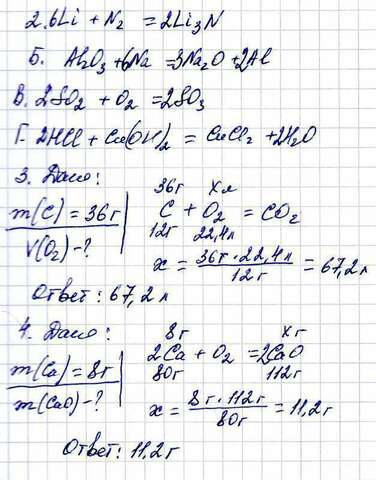 2. 6Li + N2 = 2Li3N
Б. Al2O3 + 6Na = 3Na2O + 2Al
В. 2SO2 + O2 = 2SO3
Г. 2HCl + Cu(OH)2 = CuCl2 + 2H2O
3. Дано:
36г хл
m(C) = 36г C + O2 = CO2
12г 22,4л
V(O2) - ?
x = 36г · 22,4л / 12г = 67,2л
Ответ: 67,2л
4. Дано:
8г хг
m(Ca) = 8г 2Ca + O2 = 2CaO
80г 112г
m(CaO) - ?
x = 8г · 112г / 80г = 11,2г
Ответ: 11,2г